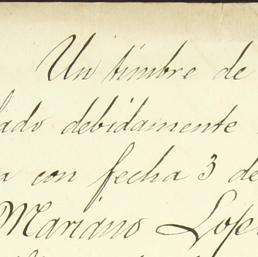 Un timbre de
lado debidamente
a con fecha 3 de
Mariano Lope